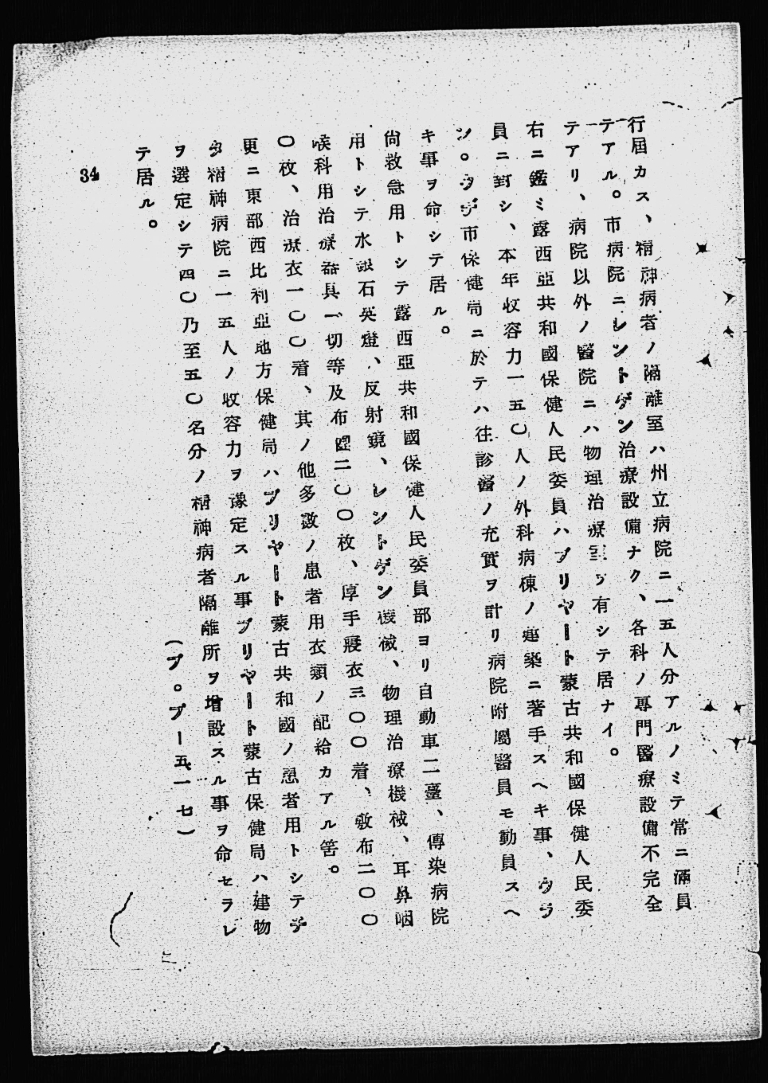 行屆カス、精神病者ノ隔離室ハ州立病院ニ一五人分アルノミテ常ニ滿員
テアル。市病院ニレントゲン治療設備ナク、各科ノ專門醫療設備不完全
テアリ、病院以外ノ醫院ニハ物理治療室ヲ有シテ居ナイ。
右ニ鑑ミ露西亞共和國保健人民委員ハブリヤート蒙古共和國保健人民委
員ニ對シ、本年收容力一五〇人ノ外科病棟ノ建築ニ著手スヘキ事、ウラ
ン。ウデ市保健局ニ於テハ往診醫ノ充實ヲ計リ病院附屬醫員モ動員スヘ
キ事ヲ命シテ居ル。
尙救急用トシテ露西亞共和國保健人民委員部ヨリ自動車二臺、傳染病院
用トシテ水銀石英燈、反射鏡、レントゲン機械、物理治療機械、耳鼻咽
喉科用治療器具一切等及布團二〇〇枚、厚手寢衣三〇〇着、敷布二〇〇
〇枚、治療衣一〇〇着、其ノ他多數ノ患者用衣類ノ配給カアル筈。
更ニ東部西比利亞地方保健局ハブリヤート蒙古共和國ノ患者用トシテチ
タ精神病院ニ一五人ノ收容力ヲ豫定スル事ブリヤート蒙古保健局ハ建物
ヲ選定シテ四〇乃至五〇名分ノ精神病者隔離所ヲ增設スル事ヲ命セラレ
テ居ル。
(ブ。プー五一七)
34